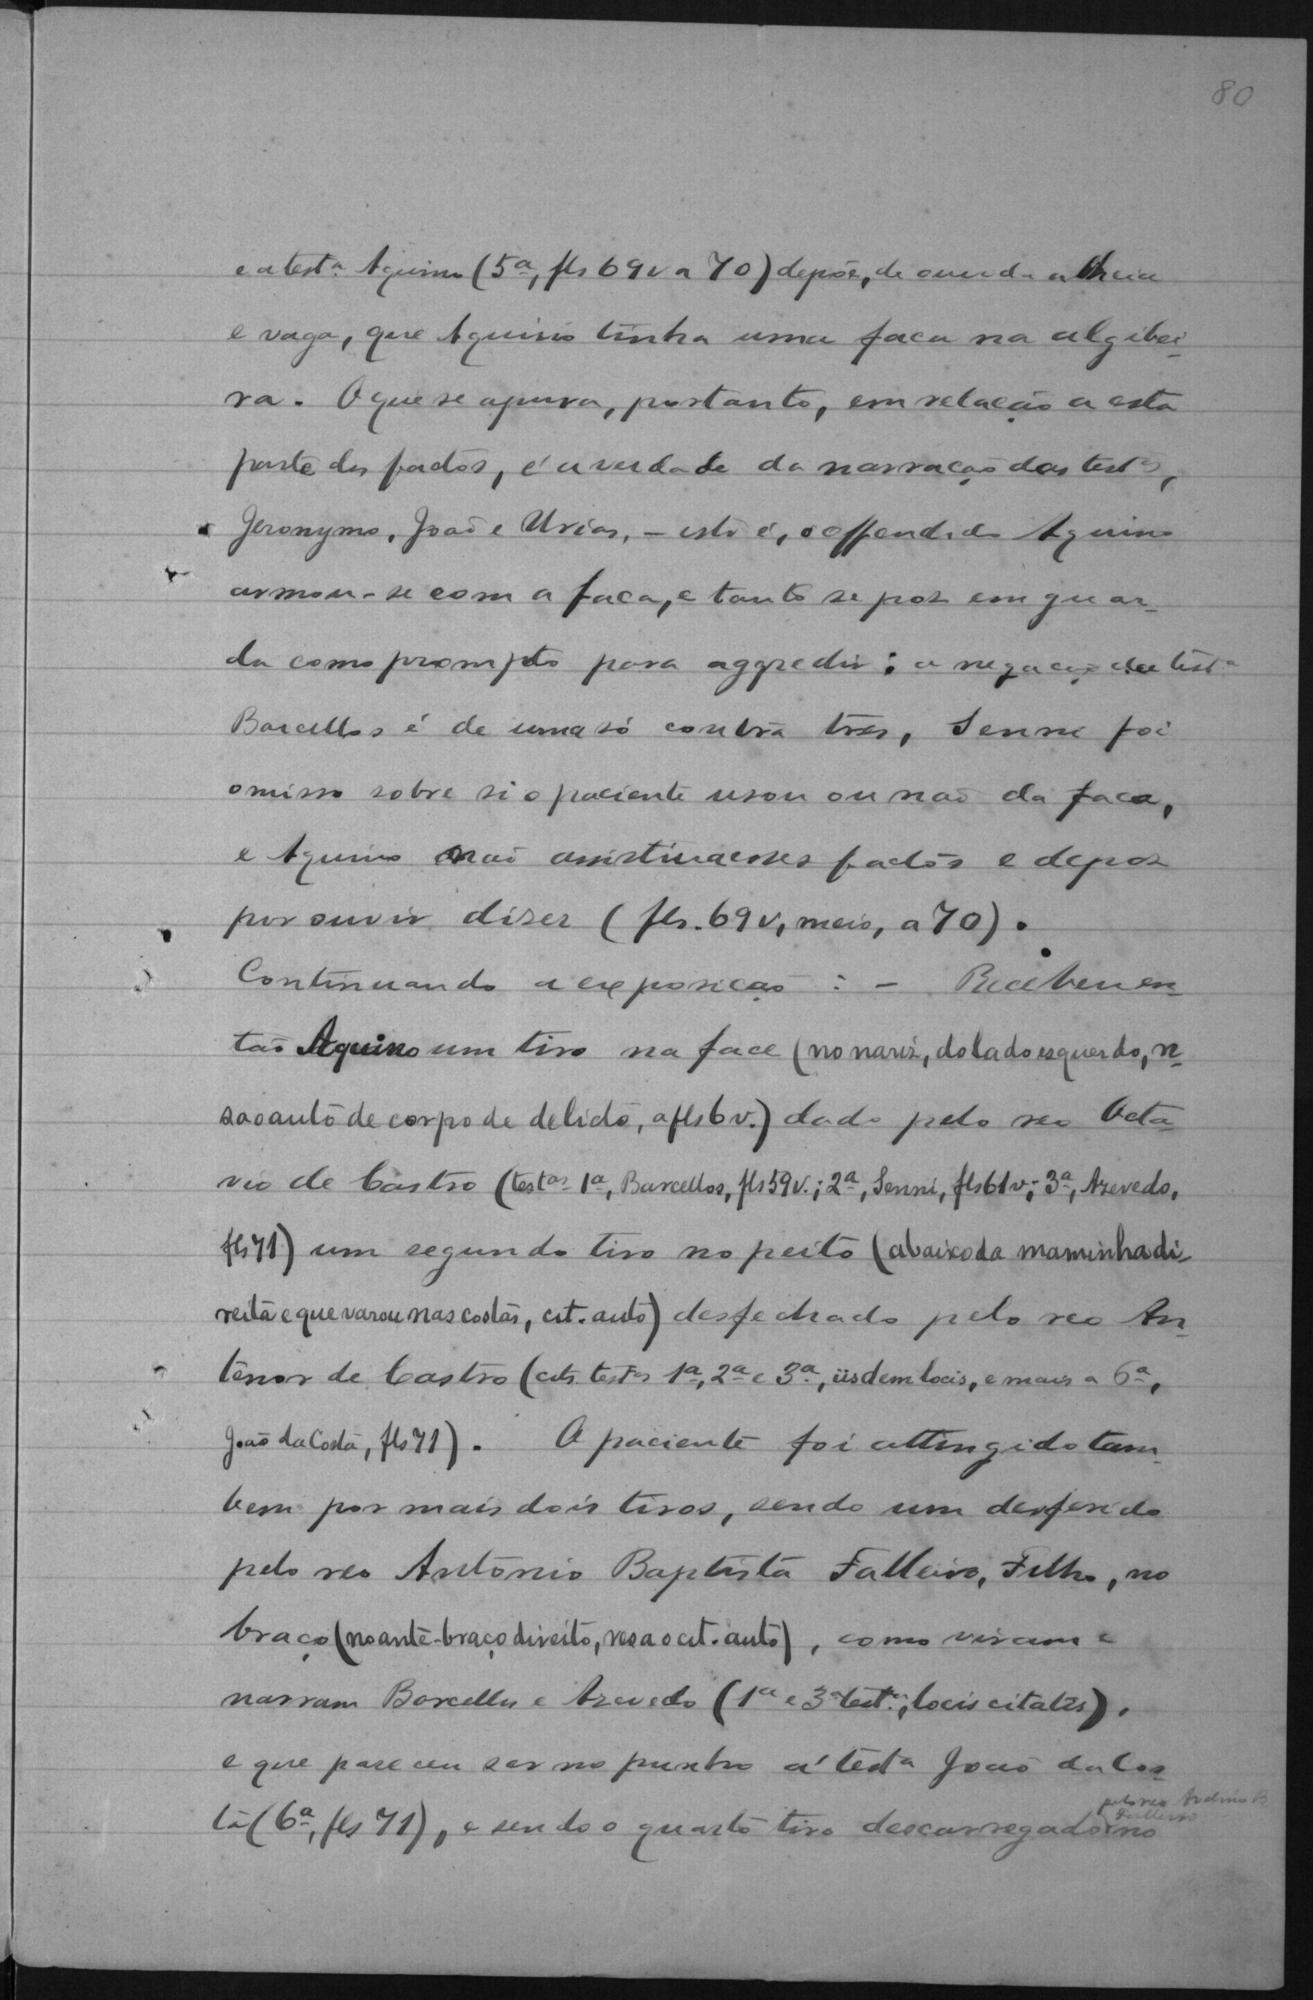 80
e a test.ª Aquino (5ª, fls 69v a 70) depõe, de ouvida alheia
e vaga, que Aquino tinha uma faca na algibei-
ra. O que se apura, portanto, em relação a esta
parte dos factos, é a verdade da narração das test.as,
Jeronymo, João e Urias, – isto é, o offendido Aquino
armou-se com a faca, e tanto se poz em guar-
da como prompto para aggredir; a negação da test.ª
Barcellos é de uma só contra tres, Senne foi
omisso sobre si o paciente usou ou não da faca,
e Aquino não assistiu a esses factos e depoz
por ouvir dizer (fls. 69v, meio, a 70).
Continuando a exposição: – Recebeu en-
tão Aquino um tiro na face (no nariz, do lado esquerdo, re-
sa o auto de corpo de delicto, a fls 6v.) dado pelo reo Octa-
vio de Castro (test.as 1ª, Barcellos, fls 59v.; 2ª, Senni, fls 61v; 3ª, Azevedo,
fls 71) um segundo tiro no peito (abaixo da maminha di-
reita e que varou nas costas, cit. auto) desfechado pelo reo An-
tenor de Castro (cits. test.as 1ª, 2ª e 3ª, iisdem locis, e mais a 6ª,
João da Costa, fls 71). O paciente foi attingido tam-
bem por mais dois tiros, sendo um desferido
pelo reo Antonio Baptista Falleiro, Filho, no
braço (no ante-braço direito, resa o cit. auto), como viram e
narram Barcellos e Azevedo (1ª e 3ª test.as, locis citatis),
e que pareceu ser no punho á test.ª João da Cos-
ta (6ª, fls 71), e sendo o quarto tiro descarregado no
pelo reo
Falleiro